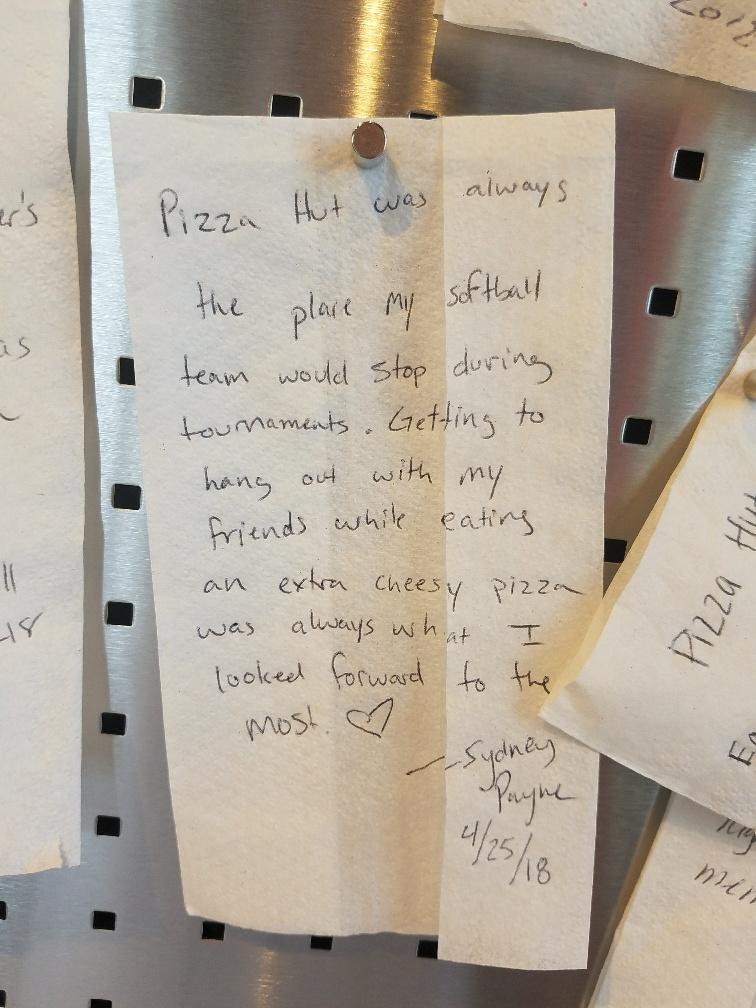 Pizza Hut was always
the place my softball
team would stop during
tournaments. Getting to
hang out with my
friends while eating
an extra cheesy pizza
was always what I
looked forward to the
most. ♡
— Sydney
Payne
4/25/18
2018
er's
as
ll
-18
Pizza Hut